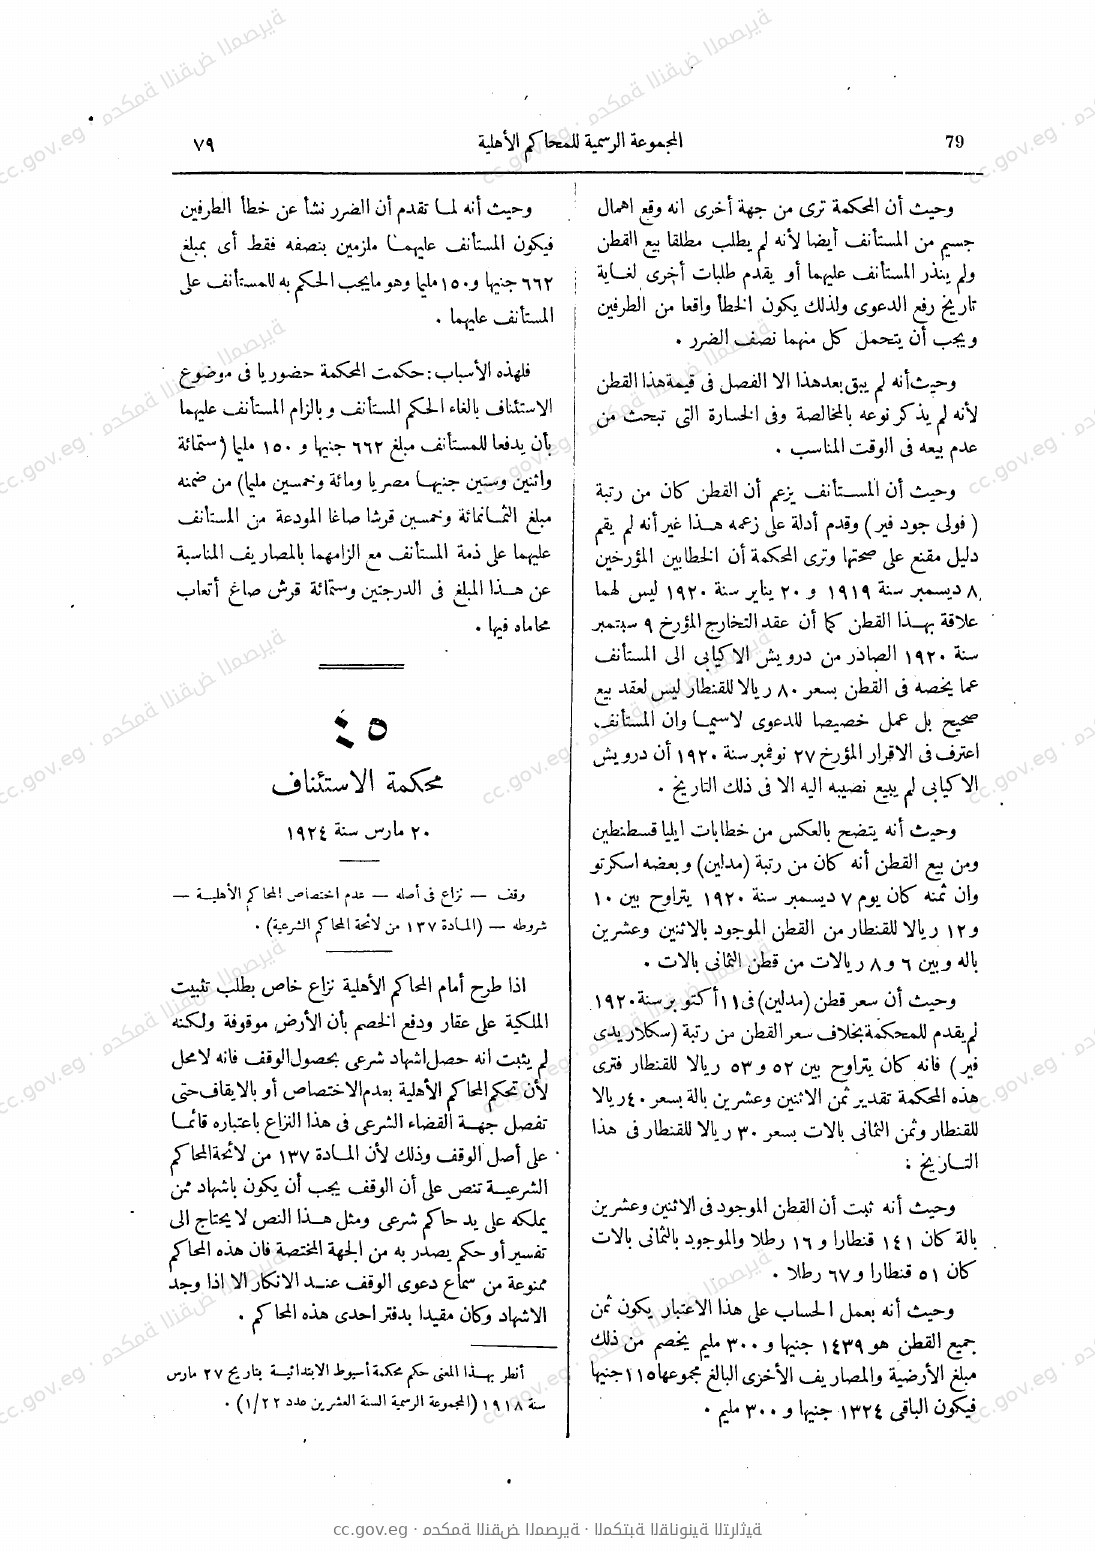 79
المجموعة الرسمية للمحاكم الأهلية
٧٩
وحيث أن المحكمة ترى من جهة أخرى انه وقع اهمال
جسيم من المستأنف أيضا لأنه لم يطلب مطلقا بيع القطن
ولم ينذر المستأنف عليهما أو يقدم طلبات أخرى لغاية
تاريخ رفع الدعوى ولذلك يكون الخطأ واقعا من الطرفين
ويجب أن يتحمل كل منهما نصف الضرر .
وحيث أنه لم يبق بعد هذا الا الفصل فى قيمة هذا القطن
لأنه لم يذكر نوعه بالمخالصة وفى الخسارة التى تبحث من
عدم بيعه فى الوقت المناسب .
وحيث أن المستأنف يزعم أن القطن كان من رتبة
( فولى جود فير ) وقدم أدلة على زعمه هذا غير أنه لم يقم
دليل مقنع على صحتها وترى المحكمة أن الخطابين المؤرخين
٨ ديسمبر سنة ١٩١٩ و ٢٠ يناير سنة ١٩٢٠ ليس لهما
علاقة بهذا القطن كما أن عقد التخارج المؤرخ ٩ سبتمبر
سنة ١٩٢٠ الصادر من درويش الاكيابى الى المستأنف
عما يخصه فى القطن بسعر ٨٠ ريالا للقنطار ليس لعقد بيع
صحيح بل عمل خصيصا للدعوى لاسيما وان المستأنف
اعترف فى الاقرار المؤرخ ٢٧ نوفمبر سنة ١٩٢٠ أن درويش
الاكيابى لم يبيع نصيبه اليه الا فى ذلك التاريخ .
وحيث أنه يتضح بالعكس من خطابات ايليا قسطنطين
ومن بيع القطن أنه كان من رتبة (مدلين) وبعضه اسكرتو
وان ثمنه كان يوم ٧ ديسمبر سنة ١٩٢٠ يتراوح بين ١٠
و١٢ ريالا للقنطار من القطن الموجود بالاثنين وعشرين
باله وبين ٦ و٨ ريالات من قطن الثمانى بالات .
وحيث أن سعر قطن (مدلين) فى ١١ أكتوبر سنة ١٩٢٠
لم يقدم للمحكمة بخلاف سعر القطن من رتبة (سكلاريدى
فير ) فانه كان يتراوح بين ٥٢ و٥٣ ريالا للقنطار فترى
هذه المحكمة تقدير ثمن الاثنين وعشرين بالة بسعر ٤٠ ريالا
للقنطار وثمن الثمانى بالات بسعر ٣٠ ريالا للقنطار فى هذا
التاريخ :
وحيث أنه ثبت أن القطن الموجود فى الاثنين وعشرين
بالة كان ١٤١ قنطارا و ١٦ رطلا والموجود بالثمانى بالات
كان ٥١ قنطارا و٦٧ رطلا .
وحيث أنه بعمل الحساب على هذا الاعتبار يكون ثمن
جميع القطن هو ١٤٣٩ جنيها و ٣٠٠ مليم يخصم من ذلك
مبلغ الأرضية والمصاريف الأخرى البالغ مجموعها ١١٥ جنيها
فيكون الباقى ١٣٢٤ جنيها و ٣٠٠ مليم .
وحيث أنه لما تقدم أن الضرر نشأ عن خطأ الطرفين
فيكون المستأنف عليهما ملزمين بنصفه فقط أى بمبلغ
٦٦٢ جنيها و١٥٠ مليما وهو مايجب الحكم به للمستأنف على
المستأنف عليهما .
فلهذه الأسباب : حكمت المحكمة حضوريا فى موضوع
الاستئناف بالغاء الحكم المستأنف وبالزام المستأنف عليهما
بأن يدفعا للمستأنف مبلغ ٦٦٢ جنيها و ١٥٠ مليما (ستمائة
واثنين وستين جنيها مصريا ومائة وخمسين مليما) من ضمنه
مبلغ الثمانمائة وخمسين قرشا صاغا المودعة من المستأنف
عليهما على ذمة المستأنف مع الزامهما بالمصاريف المناسبة
عن هذا المبلغ فى الدرجتين وستمائة قرش صاغ أتعاب
محاماه فيها .
محكمة الاستئناف
٢٠ مارس سنة ١٩٢٤
وقف — نزاع فى أصله — عدم اختصاص المحاكم الأهلية —
شروطه — (المادة ١٣٧ من لائحة المحاكم الشرعية) .
اذا طرح أمام المحاكم الأهلية نزاع خاص بطلب تثبيت
الملكية على عقار ودفع الخصم بأن الأرض موقوفة ولكنه
لم يثبت انه حصل اشهاد شرعى بحصول الوقف فانه لا محل
لأن تحكم المحاكم الأهلية بعدم الاختصاص أو بالايقاف حتى
تفصل جهة القضاء الشرعى فى هذا النزاع باعتباره قائما
على أصل الوقف وذلك لأن المادة ١٣٧ من لائحة المحاكم
الشرعية تنص على أن الوقف يجب أن يكون باشهاد ممن
يملكه على يد حاكم شرعى ومثل هذا النص لا يحتاج الى
تفسير أو حكم يصدر به من الجهة المختصة فان هذه المحاكم
ممنوعة من سماع دعوى الوقف عند الانكار الا اذا وجد
الاشهاد وكان مقيدا بدفتر احدى هذه المحاكم .
أنظر بهذا المعنى حكم محكمة أسيوط الابتدائية بتاريخ ٢٧ مارس
سنة ١٩١٨ (المجموعة الرسمية السنة العشرين عدد ١/٢٢) .
cc.gov.eg · محكمة النقض المصرية · المكتبة القانونية التراثية